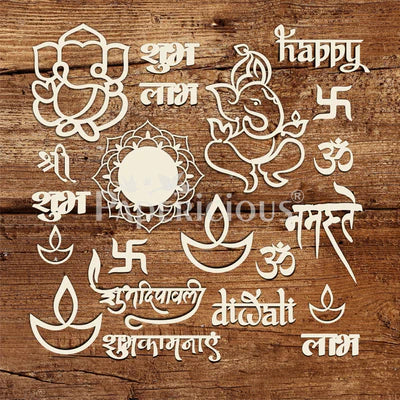 शुभ
लाभ
happy
ॐ
श्री
शुभ
Papericious®
नमस्ते
ॐ
शुभदिपावली
diwali
शुभकामनाएं
लाभ